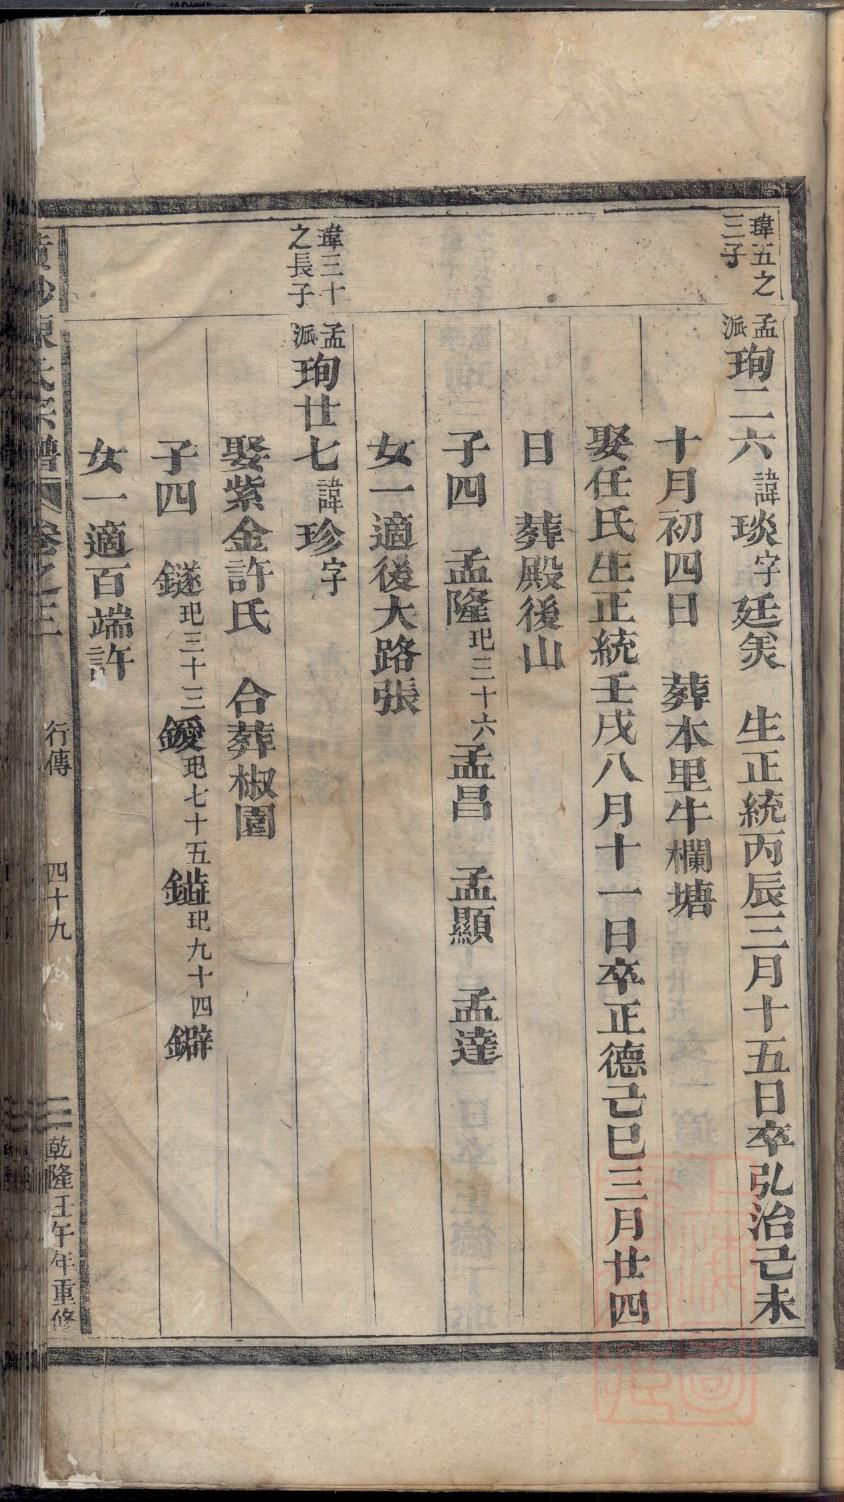 瑋五之
三子
孟派珣二六諱琰字廷美 生正統丙辰三月十五日卒弘治己未
十月初四日 葬本里牛欄塘
娶任氏生正統壬戌八月十一日卒正德己巳三月廿四
日 葬殿後山
子四 孟隆玘三十六孟昌 孟顯 孟達
女一適後大路張
瑋三十
之長子
孟派珣廿七諱珍字
娶紫金許氏 合葬椒園
子四 鐩玘三十三鑀玘七十五玘九十四
女一適百端許
陳氏宗譜 卷之三 行傳 四十九 乾隆壬午年重修